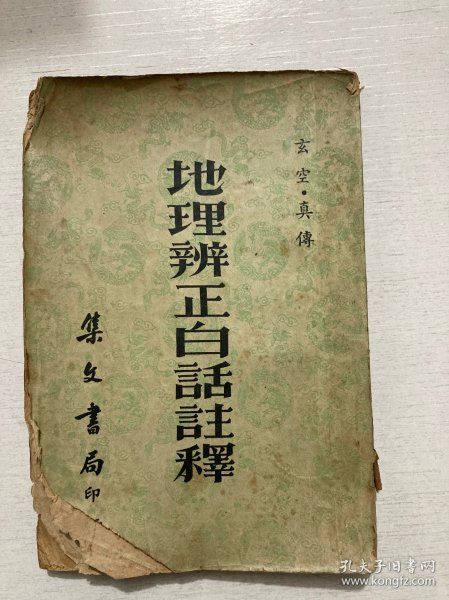 玄空·真傳
地理辨正白話註釋
集文書局印
孔夫子旧书网
www.kongfz.com